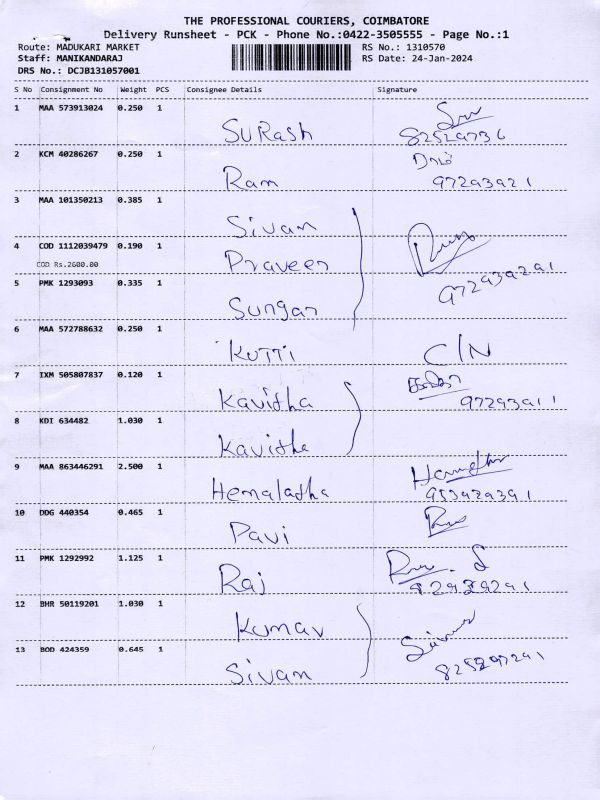 THE PROFESSIONAL COURIERS, COIMBATORE
Delivery Runsheet - PCK - Phone No.:0422-3505555 - Page No.:1
Route: MADUKARI MARKET RS No.: 1310570
Staff: MANIKANDARAJ RS Date: 24-Jan-2024
DRS No.: DCJB131057001
S No Consignment No Weight PCS Consignee Details Signature
1 MAA 573913024 0.250 1 SURash
82529736
2 KCM 40286267 0.250 1 Ram
97293921
3 MAA 101350213 0.385 1 Sivam
4 COD 1112039479 0.190 1 Praveen
COD Rs.2600.00
5 PMK 1293093 0.335 1 Sungar 97293291
6 MAA 572788632 0.250 1 KUTTI C/N
7 IXM 505807837 0.120 1 Kavitha 97293911
8 KDI 634482 1.030 1 Kavitha
9 MAA 863446291 2.500 1 Hemalatha
10 DDG 440354 0.465 1 Pavi
11 PMK 1292992 1.125 1 Raj
12 BHR 50119201 1.030 1 Kumar
13 BOD 424359 0.645 1 Sivam